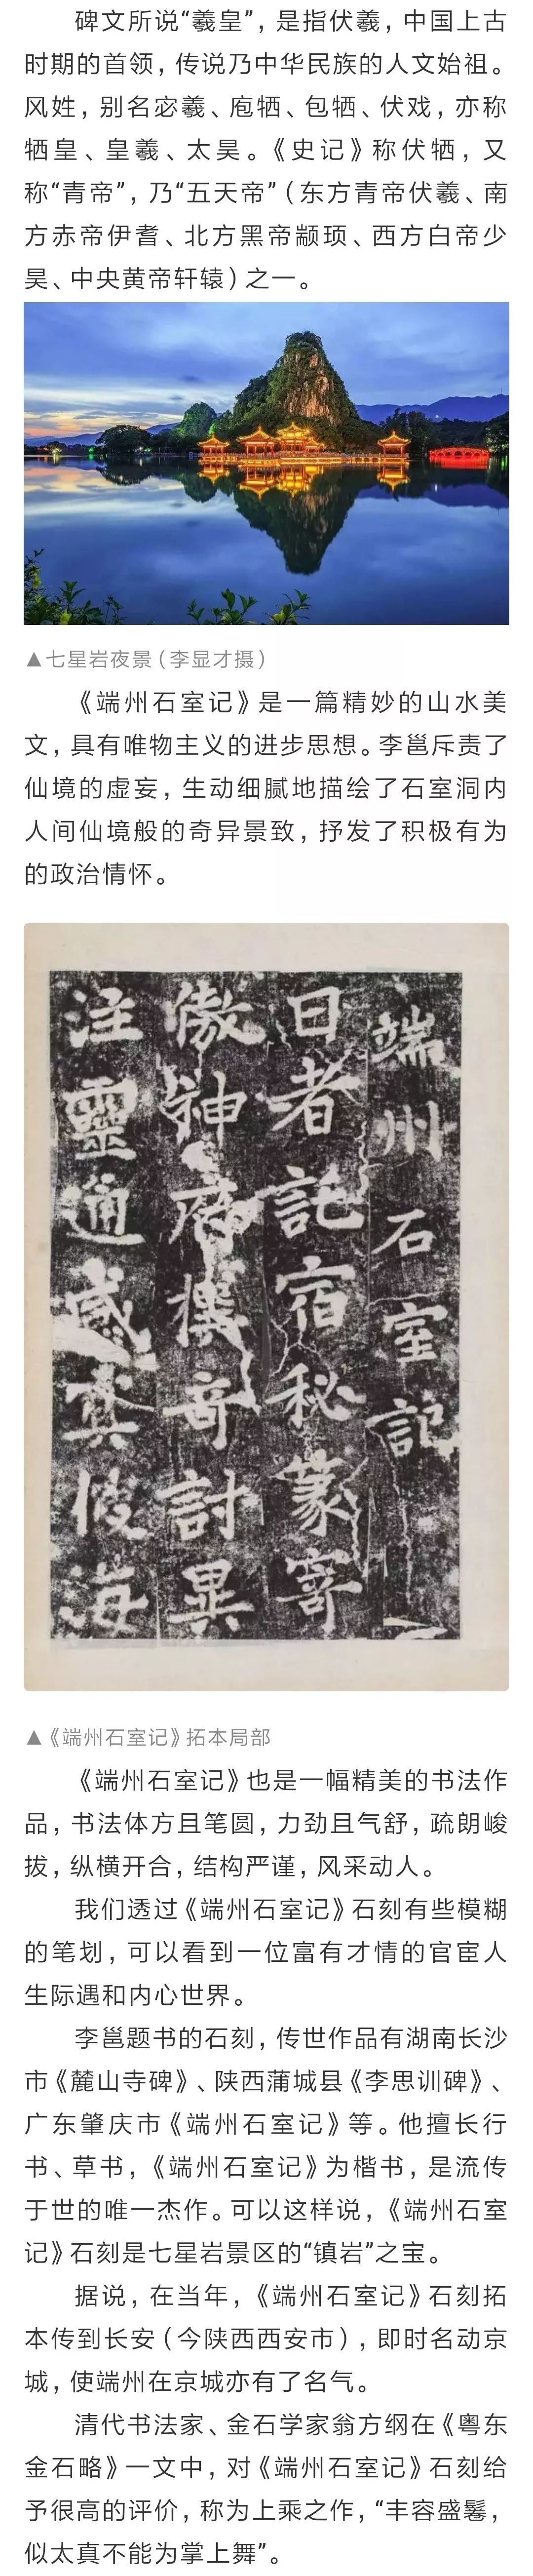 碑文所说“羲皇”，是指伏羲，中国上古
时期的首领，传说乃中华民族的人文始祖。
风姓，别名宓羲、庖牺、包牺、伏戏，亦称
牺皇、皇羲、太昊。《史记》称伏牺，又
称“青帝”，乃“五天帝”（东方青帝伏羲、南
方赤帝伊耆、北方黑帝颛顼、西方白帝少
昊、中央黄帝轩辕）之一。
▲七星岩夜景（李显才摄）
《端州石室记》是一篇精妙的山水美
文，具有唯物主义的进步思想。李邕斥责了
仙境的虚妄，生动细腻地描绘了石室洞内
人间仙境般的奇异景致，抒发了积极有为
的政治情怀。
端州石室記
日者託宿秘篆寄
傲神府撰奇討異
注靈通感真假海
▲《端州石室记》拓本局部
《端州石室记》也是一幅精美的书法作
品，书法体方且笔圆，力劲且气舒，疏朗峻
拔，纵横开合，结构严谨，风采动人。
我们透过《端州石室记》石刻有些模糊
的笔划，可以看到一位富有才情的官宦人
生际遇和内心世界。
李邕题书的石刻，传世作品有湖南长沙
市《麓山寺碑》、陕西蒲城县《李思训碑》、
广东肇庆市《端州石室记》等。他擅长行
书、草书，《端州石室记》为楷书，是流传
于世的唯一杰作。可以这样说，《端州石室
记》石刻是七星岩景区的“镇岩”之宝。
据说，在当年，《端州石室记》石刻拓
本传到长安（今陕西西安市），即时名动京
城，使端州在京城亦有了名气。
清代书法家、金石学家翁方纲在《粤东
金石略》一文中，对《端州石室记》石刻给
予很高的评价，称为上乘之作，“丰容盛鬋，
似太真不能为掌上舞”。